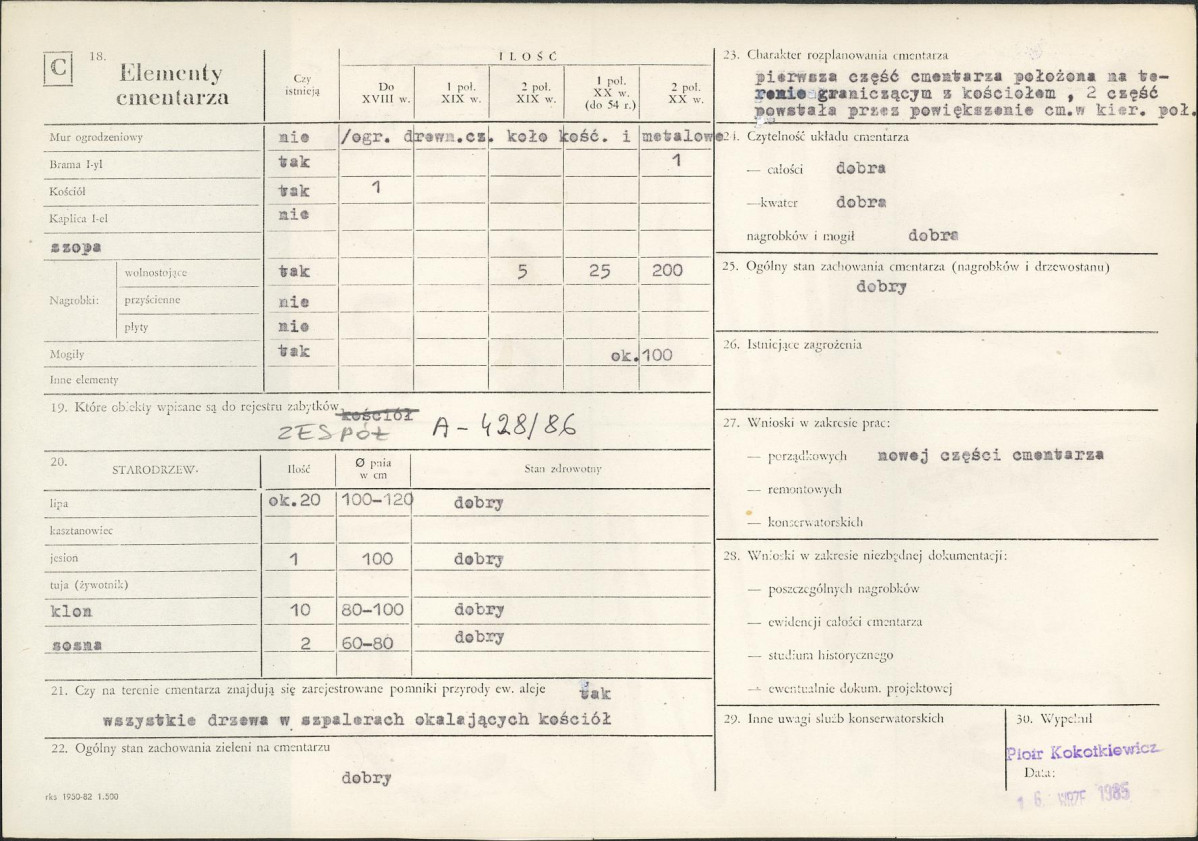 C
18. Elementy cmentarza
Czy istnieją
ILOŚĆ
Do XVIII w.
1 poł. XIX w.
2 poł. XIX w.
1 poł. XX w. (do 54 r.)
2 poł. XX w.
Mur ogrodzeniowy nie /ogr. drewn.cz. koło kość. i metalowe
Brama I-yl tak 1
Kościół tak 1
Kaplica I-el nie
szopa
Nagrobki:
wolnostojące tak 5 25 200
przyścienne nie
płyty nie
Mogiły tak ok.100
Inne elementy
19. Które obiekty wpisane są do rejestru zabytków kościół
ZESPÓŁ A-428/86
20. STARODRZEW. Ilość Ø pnia w cm Stan zdrowotny
lipa ok.20 100-120 dobry
kasztanowiec
jesion 1 100 dobry
tuja (żywotnik)
klon 10 80-100 dobry
sosna 2 60-80 dobry
21. Czy na terenie cmentarza znajdują się zarejestrowane pomniki przyrody ew. aleje tak
wszystkie drzewa w szpalerach okalających kościół
22. Ogólny stan zachowania zieleni na cmentarzu
dobry
rks 1950-82 1.500
23. Charakter rozplanowania cmentarza
pierwsza część cmentarza położona na te-
renie graniczącym z kościołem , 2 część
powstała przez powiększenie cm.w kier. poł.
24. Czytelność układu cmentarza
— całości dobra
—kwater dobra
nagrobków i mogił dobra
25. Ogólny stan zachowania cmentarza (nagrobków i drzewostanu)
dobry
26. Istniejące zagrożenia
27. Wnioski w zakresie prac:
— porządkowych nowej części cmentarza
— remontowych
— konserwatorskich
28. Wnioski w zakresie niezbędnej dokumentacji:
— poszczególnych nagrobków
— ewidencji całości cmentarza
— studium historycznego
— ewentualnie dokum. projektowej
29. Inne uwagi służb konserwatorskich
30. Wypełnił
Piotr Kokotkiewicz
Data:
1 6. WRZE 1985